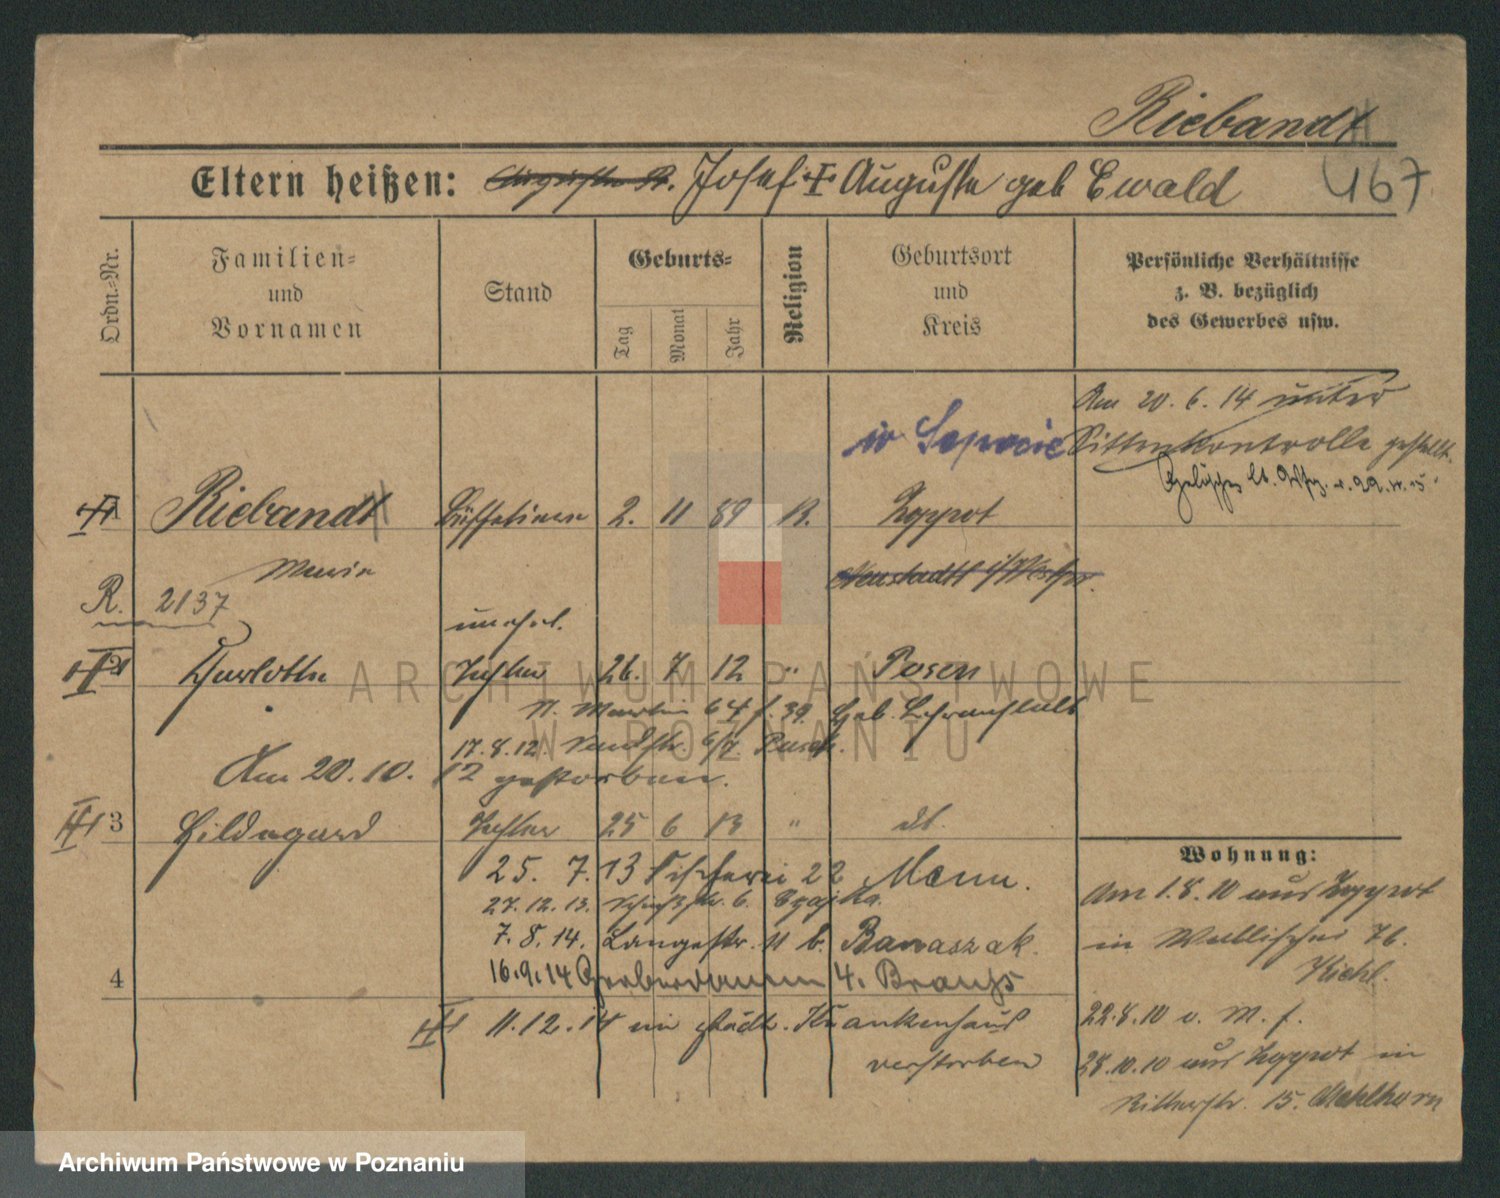 Riebandt
467
Eltern heißen: Auguste R. Josef Auguste geb Ewald
Ordn.-Nr.
Familien-
und
Vornamen
Stand
Geburts-
Tag
Monat
Jahr
Religion
Geburtsort
und
Kreis
Persönliche Verhältnisse
z. B. bezüglich
des Gewerbes usw.
Am 20. 6. 14 unter
Sittenkontrolle gestellt.
Riebandt Büffetiere 2. 11 89 Zoppot
Marie Neustadt i/Westpr.
R. 2137
unehel.
2 Charlotte Tochter 26. 7 12 " Posen
St. Martin 64 Geb. Lehranstalt
17. 8. 12.
Am 20. 10. 12 gestorben.
3 Hildegard Tochter 25 6 13 " dt.
25. 7. 13 Fischerei 22
27. 12. 13. 6.
7. 8. 14. Langestr. 11 b. Banaszak.
4 16. 9. 14 Grabendamm 4.
11. 12. 14 im städt. Krankenhaus
verstorben
Wohnung:
Am 1. 8. 10 aus Zoppot
in Wallischei 76.
22. 8. 10 v. M. f.
28. 10. 10 aus Zoppot in
Ritterstr. 15. Mehlhorn
ARCHIWUM PAŃSTWOWE
W POZNANIU
Archiwum Państwowe w Poznaniu